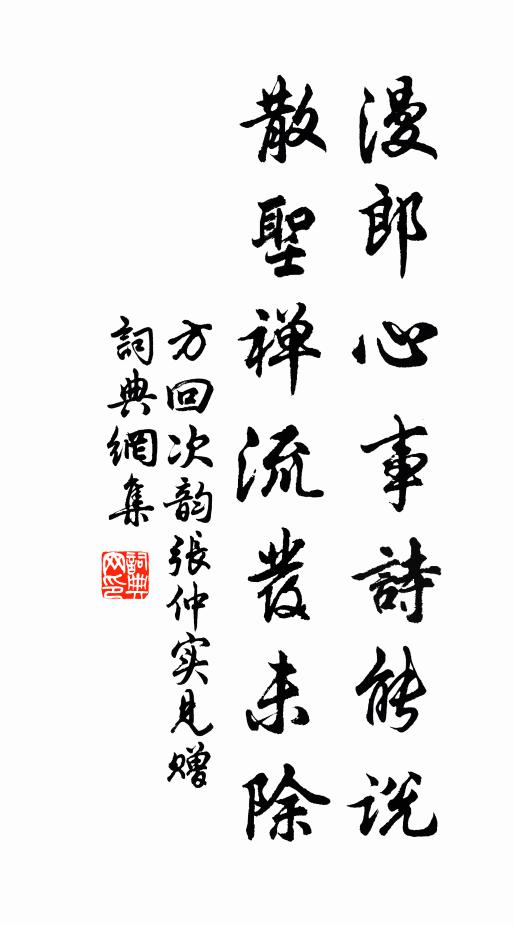 漫郎心事詩能説
散聖禅流發未除
方回次韵張仲实見赠
詞典網集
詞典
网印